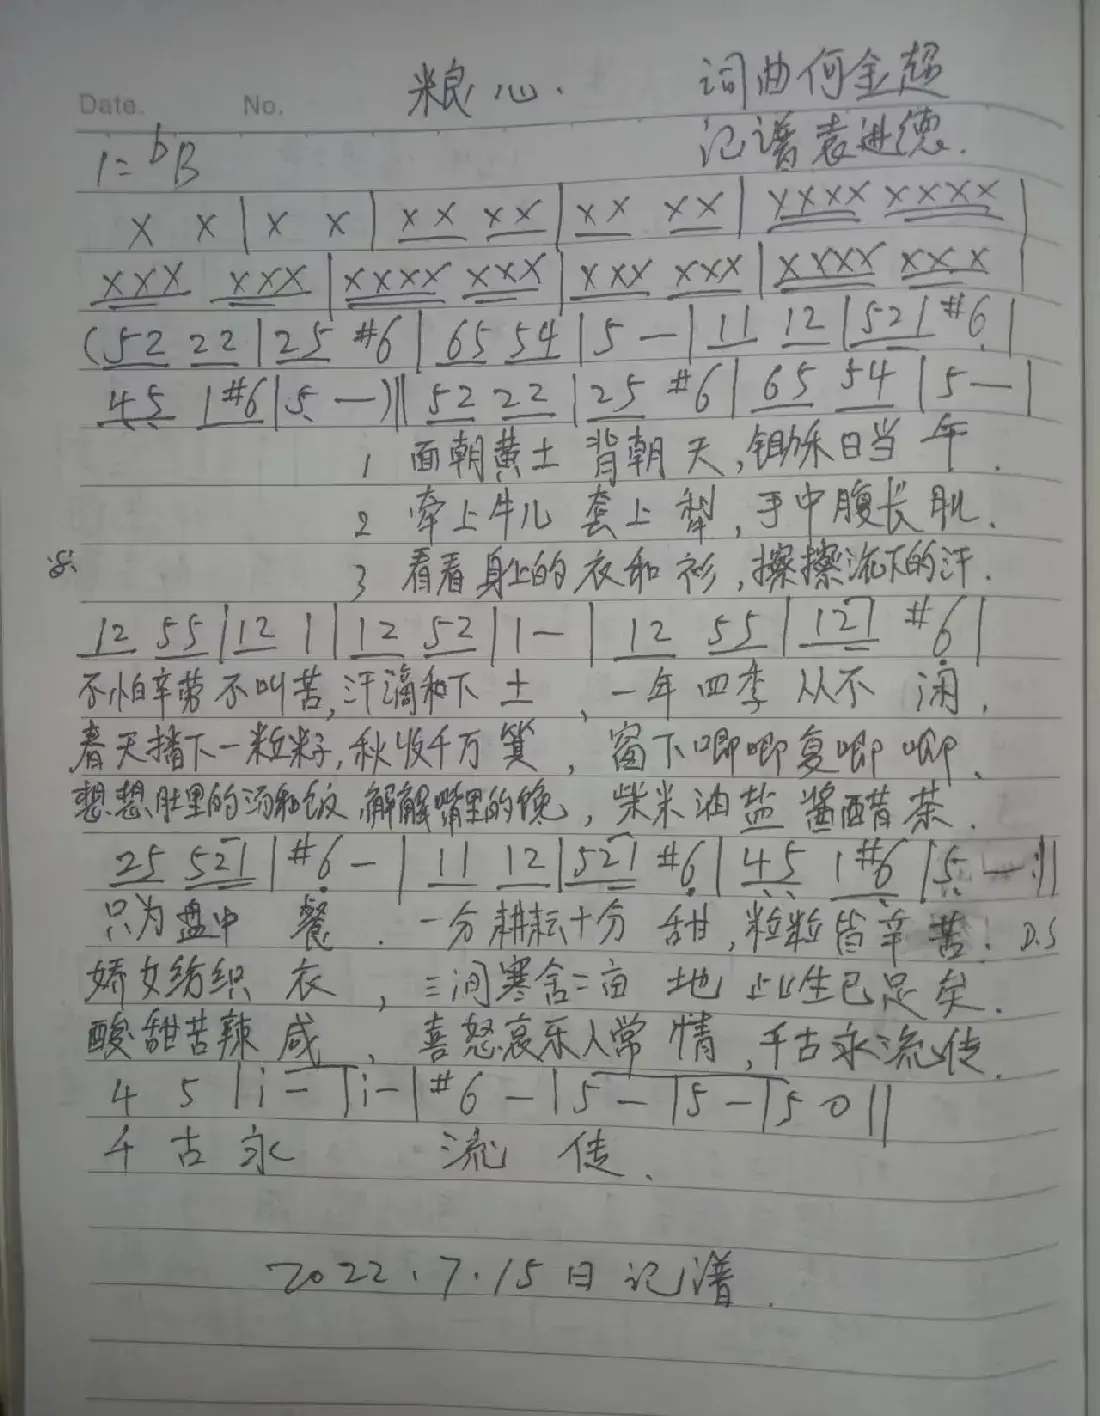 粮心. 词曲何金超
Date. No.
记谱袁进德.
1=bB
X X | X X | XX XX | XX XX | XXXX XXXX |
XXX XXX | XXXX XXX | XXX XXX | XXXX XXX |
(52 22 | 25 #6 | 65 54 | 5 — | 11 12 | 521 #6 |
45 1#6 | 5 —) || 52 22 | 25 #6 | 65 54 | 5 — |
1 面朝黄土 背朝天, 锄禾日当午.
2 牵上牛儿 套上犁, 手中腹长肌.
3 看看身上的衣和衫, 擦擦流下的汗.
12 55 | 12 1 | 12 52 | 1 — | 12 55 | 121 #6 |
不怕辛劳不叫苦, 汗滴和下土, 一年四季从不闲.
春天播下一粒籽, 秋收千万箕, 窗下唧唧复唧唧.
想想肚里的汤和饭 解解嘴里的馋, 柴米油盐酱醋茶.
25 521 | #6 — | 11 12 | 521 #6 | 45 1#6 | 5 — :||
只为盘中餐. 一分耕耘十分甜, 粒粒皆辛苦. D.S
娇女纺织衣, 三间寒舍二亩地 此生已足矣.
酸甜苦辣咸, 喜怒哀乐人常情, 千古永流传.
4 5 | i — | i — | #6 — | 5 — | 5 — | 5 0 ||
千古永 流传.
2022.7.15日记谱.